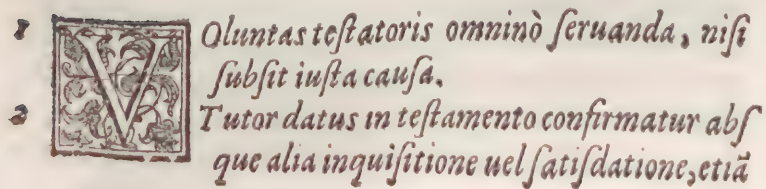 1 VOluntas teſtatoris omninò ſeruanda, niſi
ſubſit iuſta cauſa.
2 Tutor datus in teſtamento confirmatur abſ
que alia inquiſitione uel ſatiſdatione, etiã